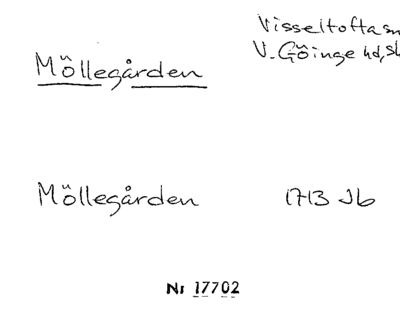 Visseltofta sn
V. Göinge hd, Sk
Möllegården
Möllegården 1713 Jb
Nr 17702